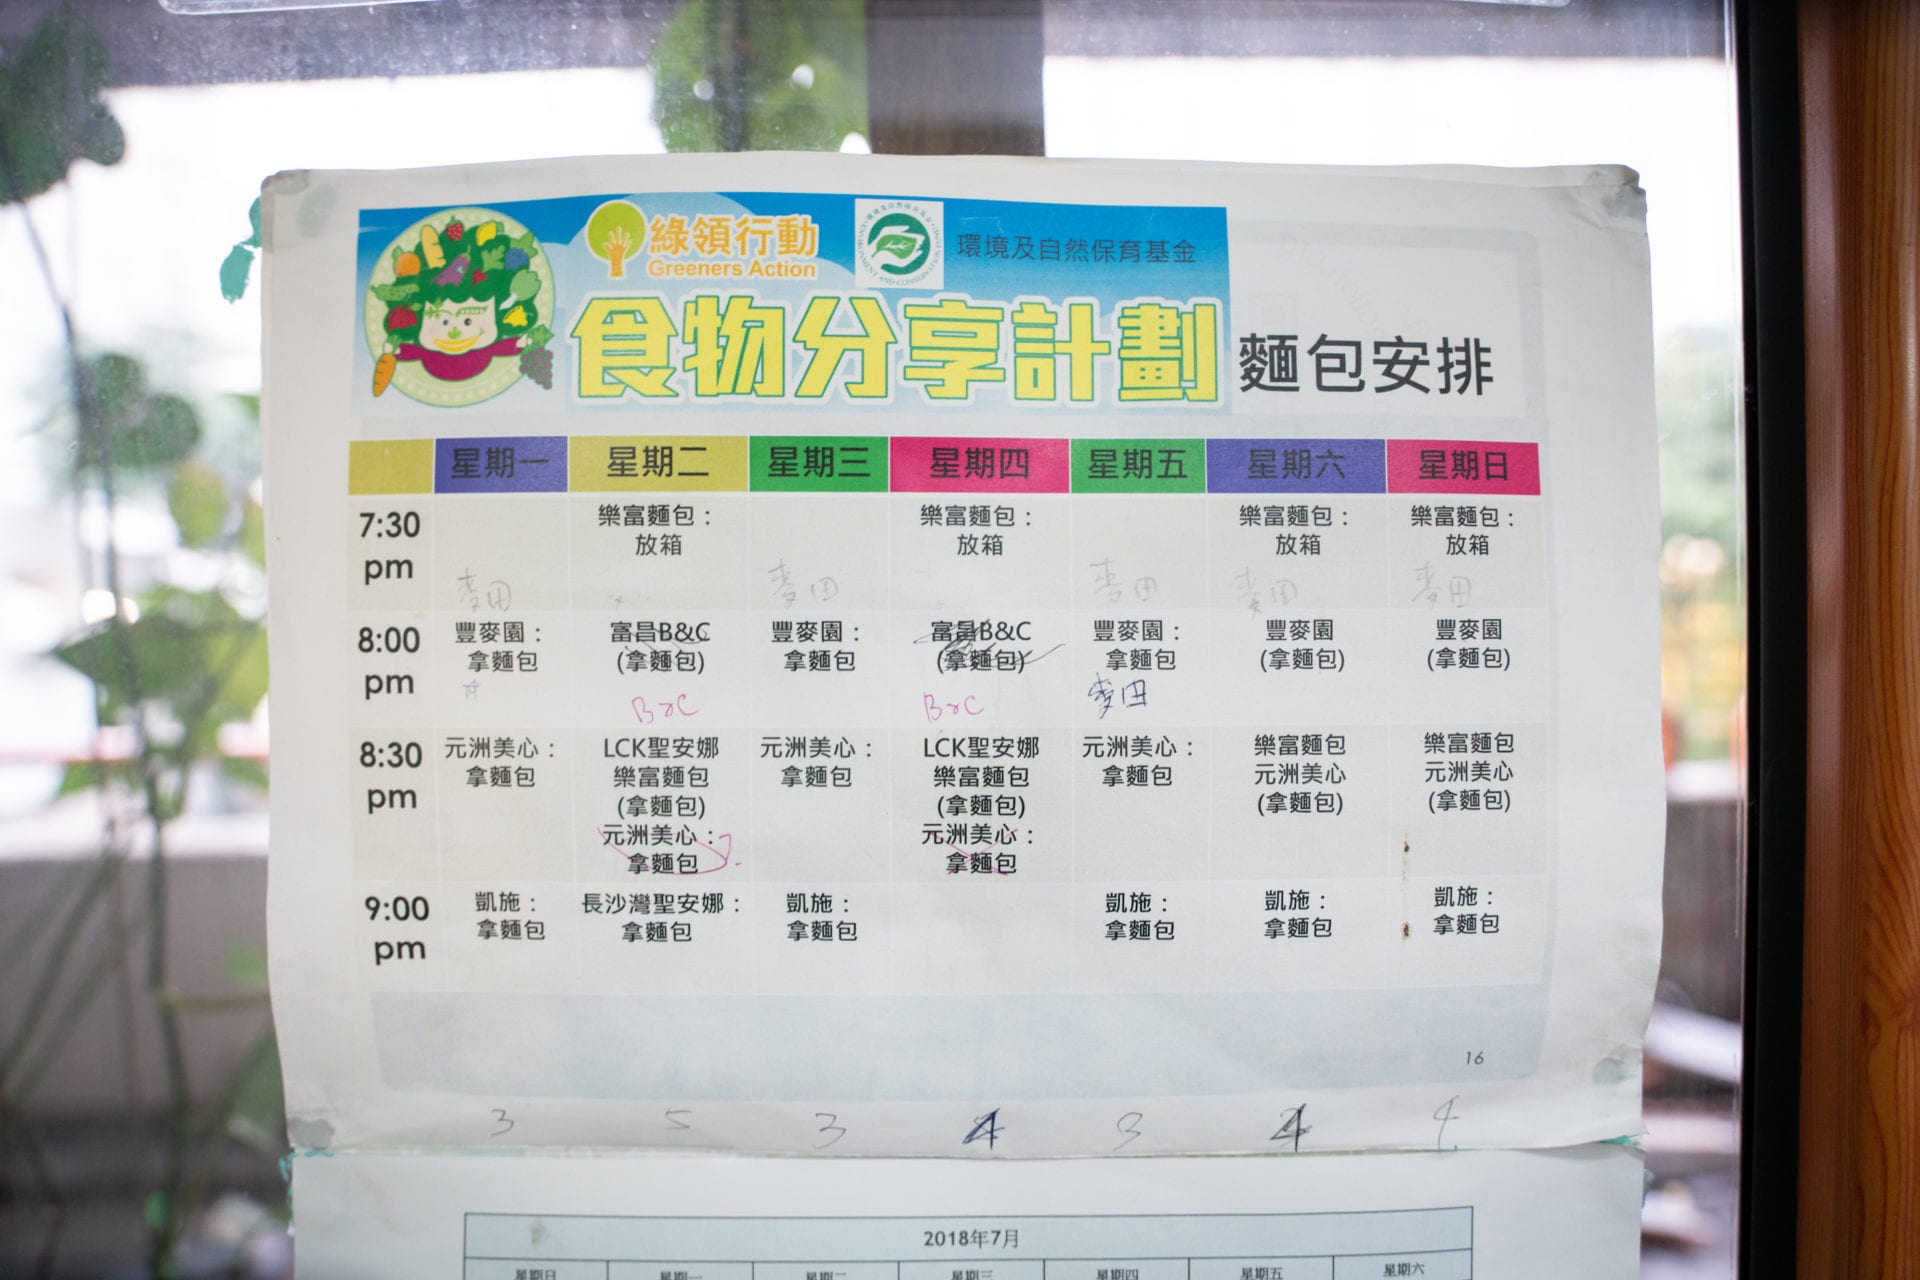 綠領行動
Greeners Action
環境及自然保育基金
食物分享計劃 麵包安排
星期一 星期二 星期三 星期四 星期五 星期六 星期日
7:30 pm
樂富麵包：
放箱
樂富麵包：
放箱
樂富麵包：
放箱
樂富麵包：
放箱
麥田 麥田 麥田 麥田 麥田
8:00 pm
豐麥園：
拿麵包
富昌B&C
(拿麵包)
B&C
豐麥園：
拿麵包
富昌B&C
(拿麵包)
B&C
豐麥園：
拿麵包
麥田
豐麥園
(拿麵包)
豐麥園
(拿麵包)
8:30 pm
元洲美心：
拿麵包
LCK聖安娜
樂富麵包
(拿麵包)
元洲美心：
拿麵包
元洲美心：
拿麵包
LCK聖安娜
樂富麵包
(拿麵包)
元洲美心：
拿麵包
元洲美心：
拿麵包
樂富麵包
元洲美心
(拿麵包)
樂富麵包
元洲美心
(拿麵包)
9:00 pm
凱施：
拿麵包
長沙灣聖安娜：
拿麵包
凱施：
拿麵包
凱施：
拿麵包
凱施：
拿麵包
凱施：
拿麵包
16
3 5 3 4 3 4 4
2018年7月
星期日 星期一 星期二 星期三 星期四 星期五 星期六